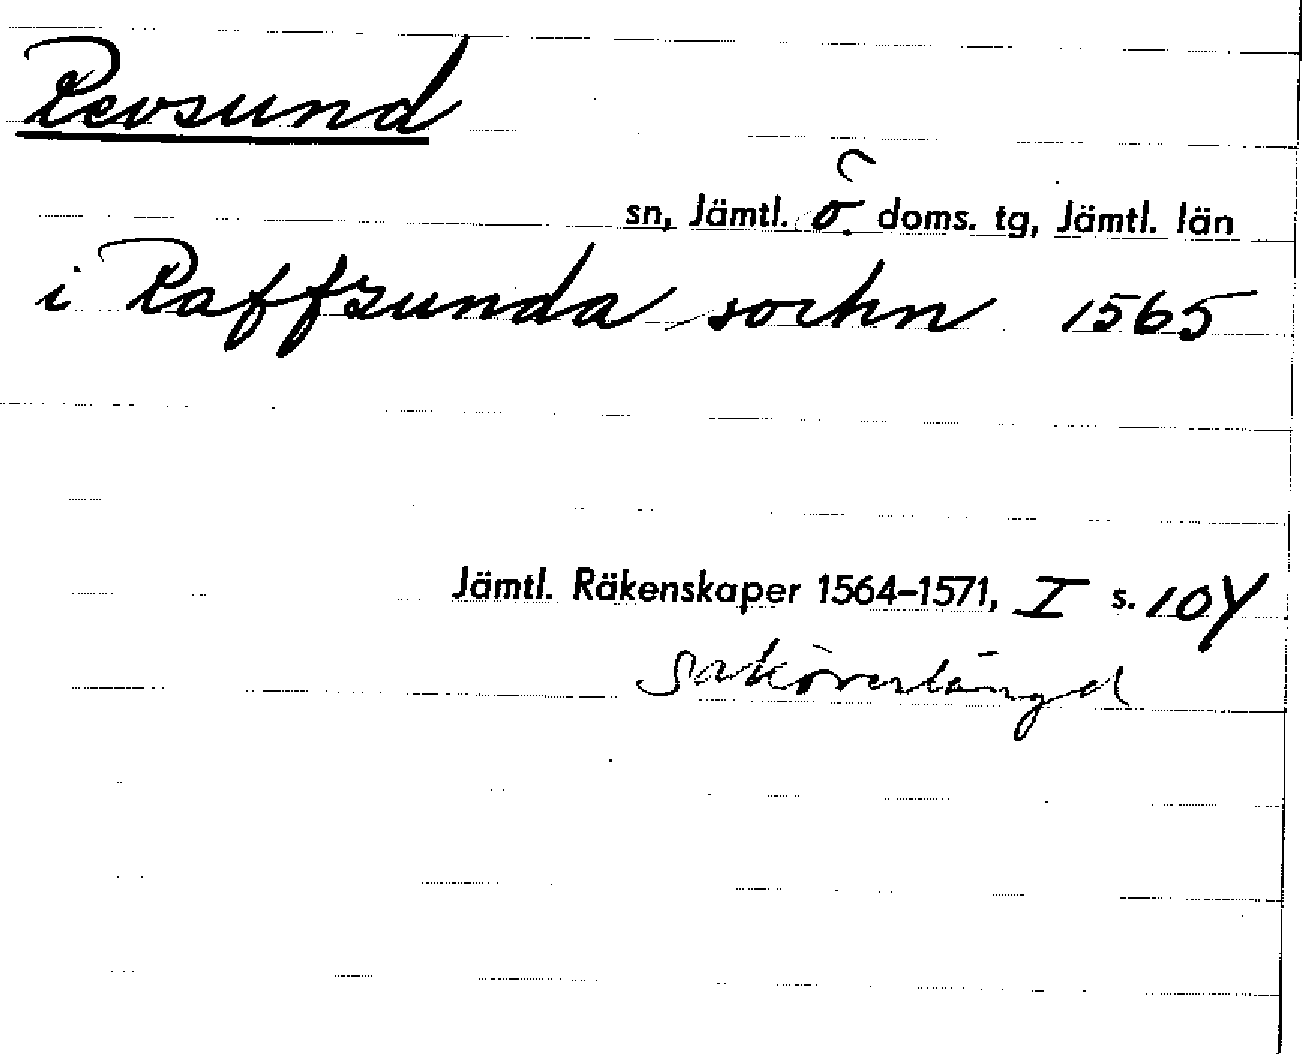 Revsund
sn, Jämtl. ö. doms. tg, Jämtl. län
i Raffsunda sochn 1565
Jämtl. Räkenskaper 1564–1571, I s. 104
saköreslängd